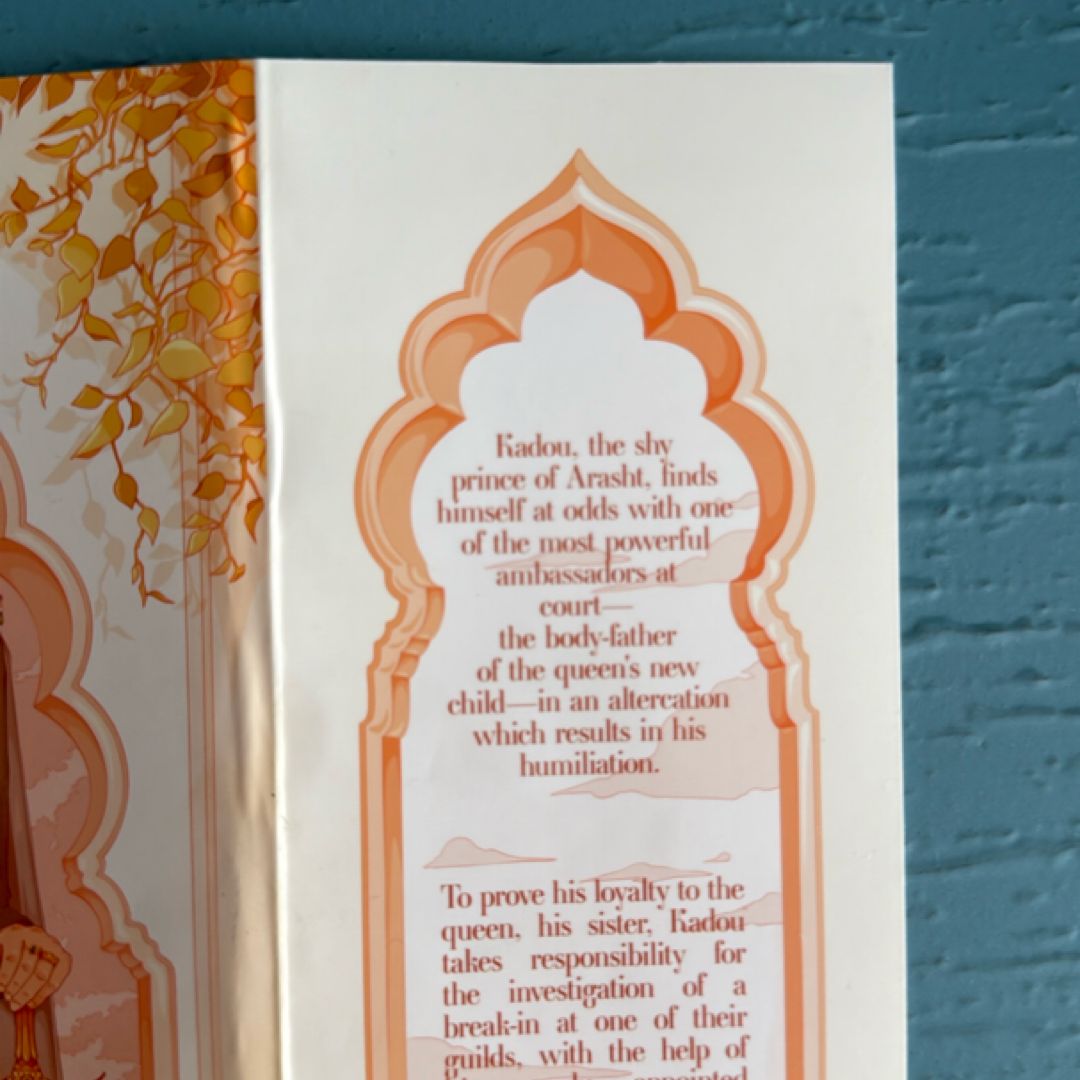 Kadou, the shy
prince of Arasht, finds
himself at odds with one
of the most powerful
ambassadors at
court—
the body-father
of the queen's new
child—in an altercation
which results in his
humiliation.
To prove his loyalty to the
queen, his sister, Kadou
takes responsibility for
the investigation of a
break-in at one of their
guilds, with the help of
appointed